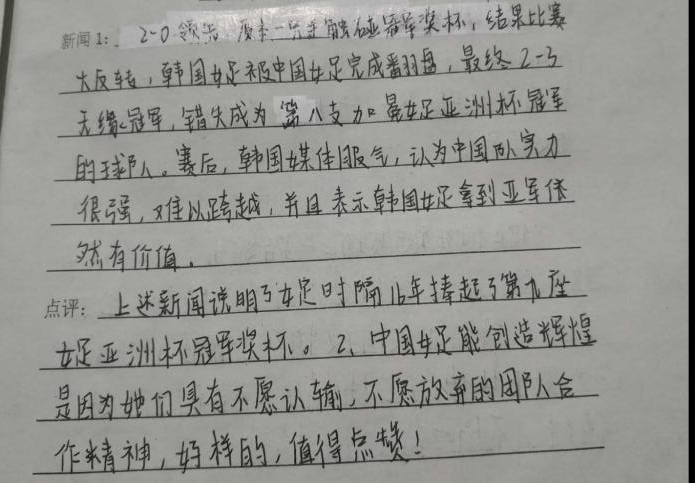 新闻1: 2-0领先 原本一只手触碰冠军奖杯，结果比赛
大反转，韩国女足被中国女足完成翻盘，最终2-3
无缘冠军，错失成为第八支加冕女足亚洲杯冠军
的球队。赛后，韩国媒体服气，认为中国队实力
很强，难以跨越，并且表示韩国女足拿到亚军依
然有价值。
点评: 上述新闻说明了女足时隔16年捧起了第九座
女足亚洲杯冠军奖杯。2、中国女足能创造辉煌
是因为她们具有不愿认输，不愿放弃的团队合
作精神，好样的，值得点赞！